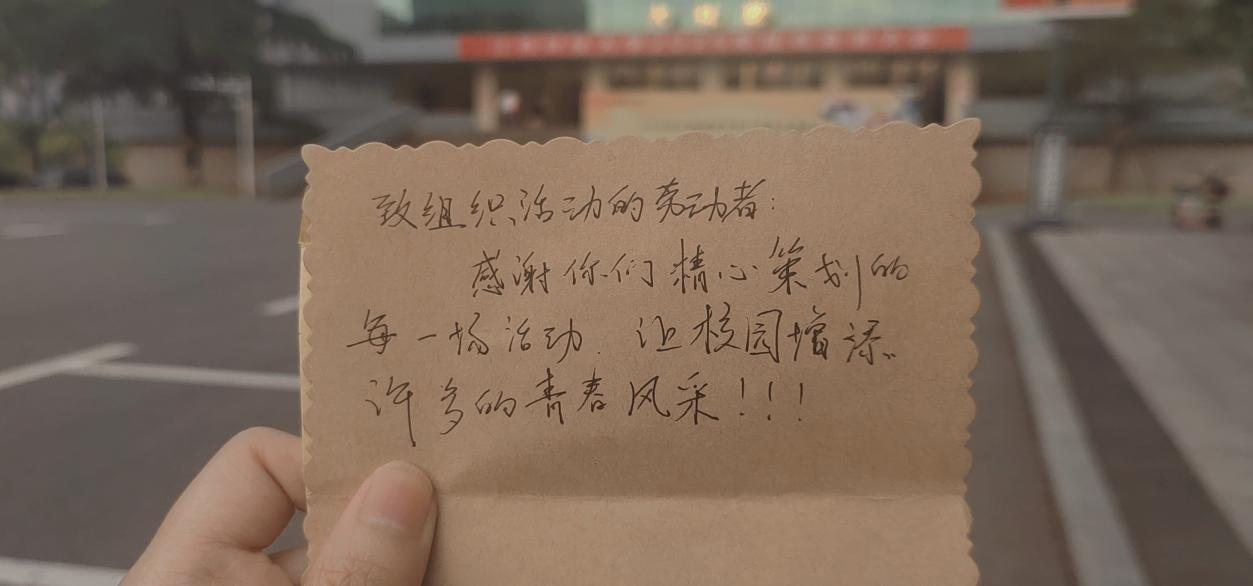 致组织活动的劳动者：
感谢你们精心策划的
每一场活动. 让校园增添
许多的青春风采！！！